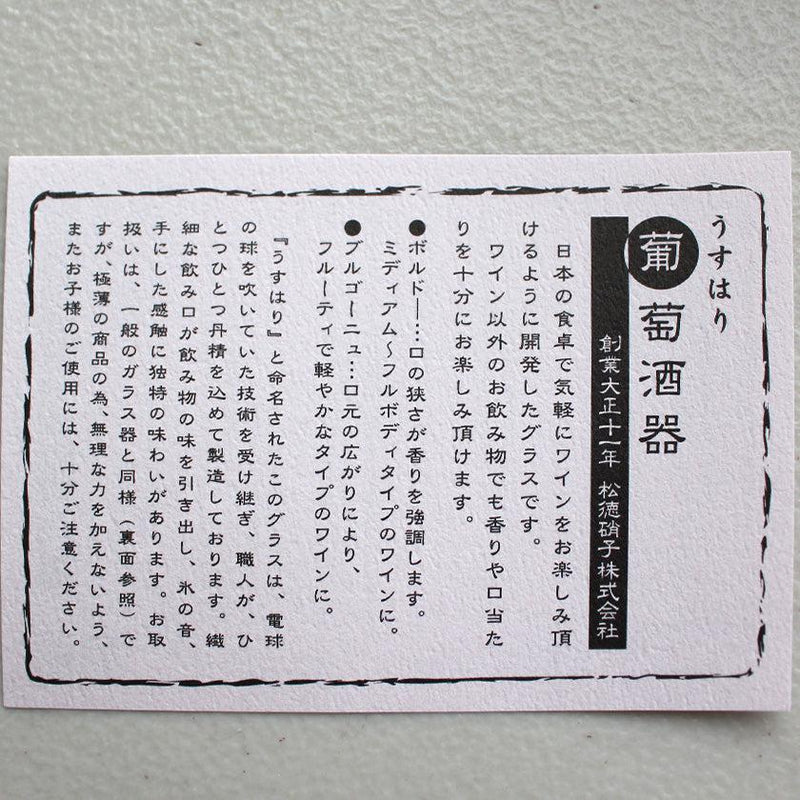 うすはり
葡萄酒器
創業大正十一年 松徳硝子株式会社
日本の食卓で気軽にワインをお楽しみ頂
けるように開発したグラスです。
ワイン以外のお飲み物でも香りや口当た
りを十分にお楽しみ頂けます。
●ボルドー…口の狭さが香りを強調します。
ミディアム〜フルボディタイプのワインに。
●ブルゴーニュ…口元の広がりにより、
フルーティで軽やかなタイプのワインに。
『うすはり』と命名されたこのグラスは、電球
の球を吹いていた技術を受け継ぎ、職人が、ひ
とつひとつ丹精を込めて製造しております。繊
細な飲み口が飲み物の味を引き出し、氷の音、
手にした感触に独特の味わいがあります。お取
扱いは、一般のガラス器と同様（裏面参照）で
すが、極薄の商品の為、無理な力を加えないよう、
またお子様のご使用には、十分ご注意ください。